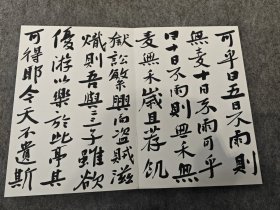 可乎曰五日不雨則
無麥十日不雨可乎
曰十日不雨則無禾無
麥無禾歲且荐飢
獄訟繁興而盜賊滋
熾則吾與二三子雖欲
優游以樂於此亭其
可得耶今天不遺斯